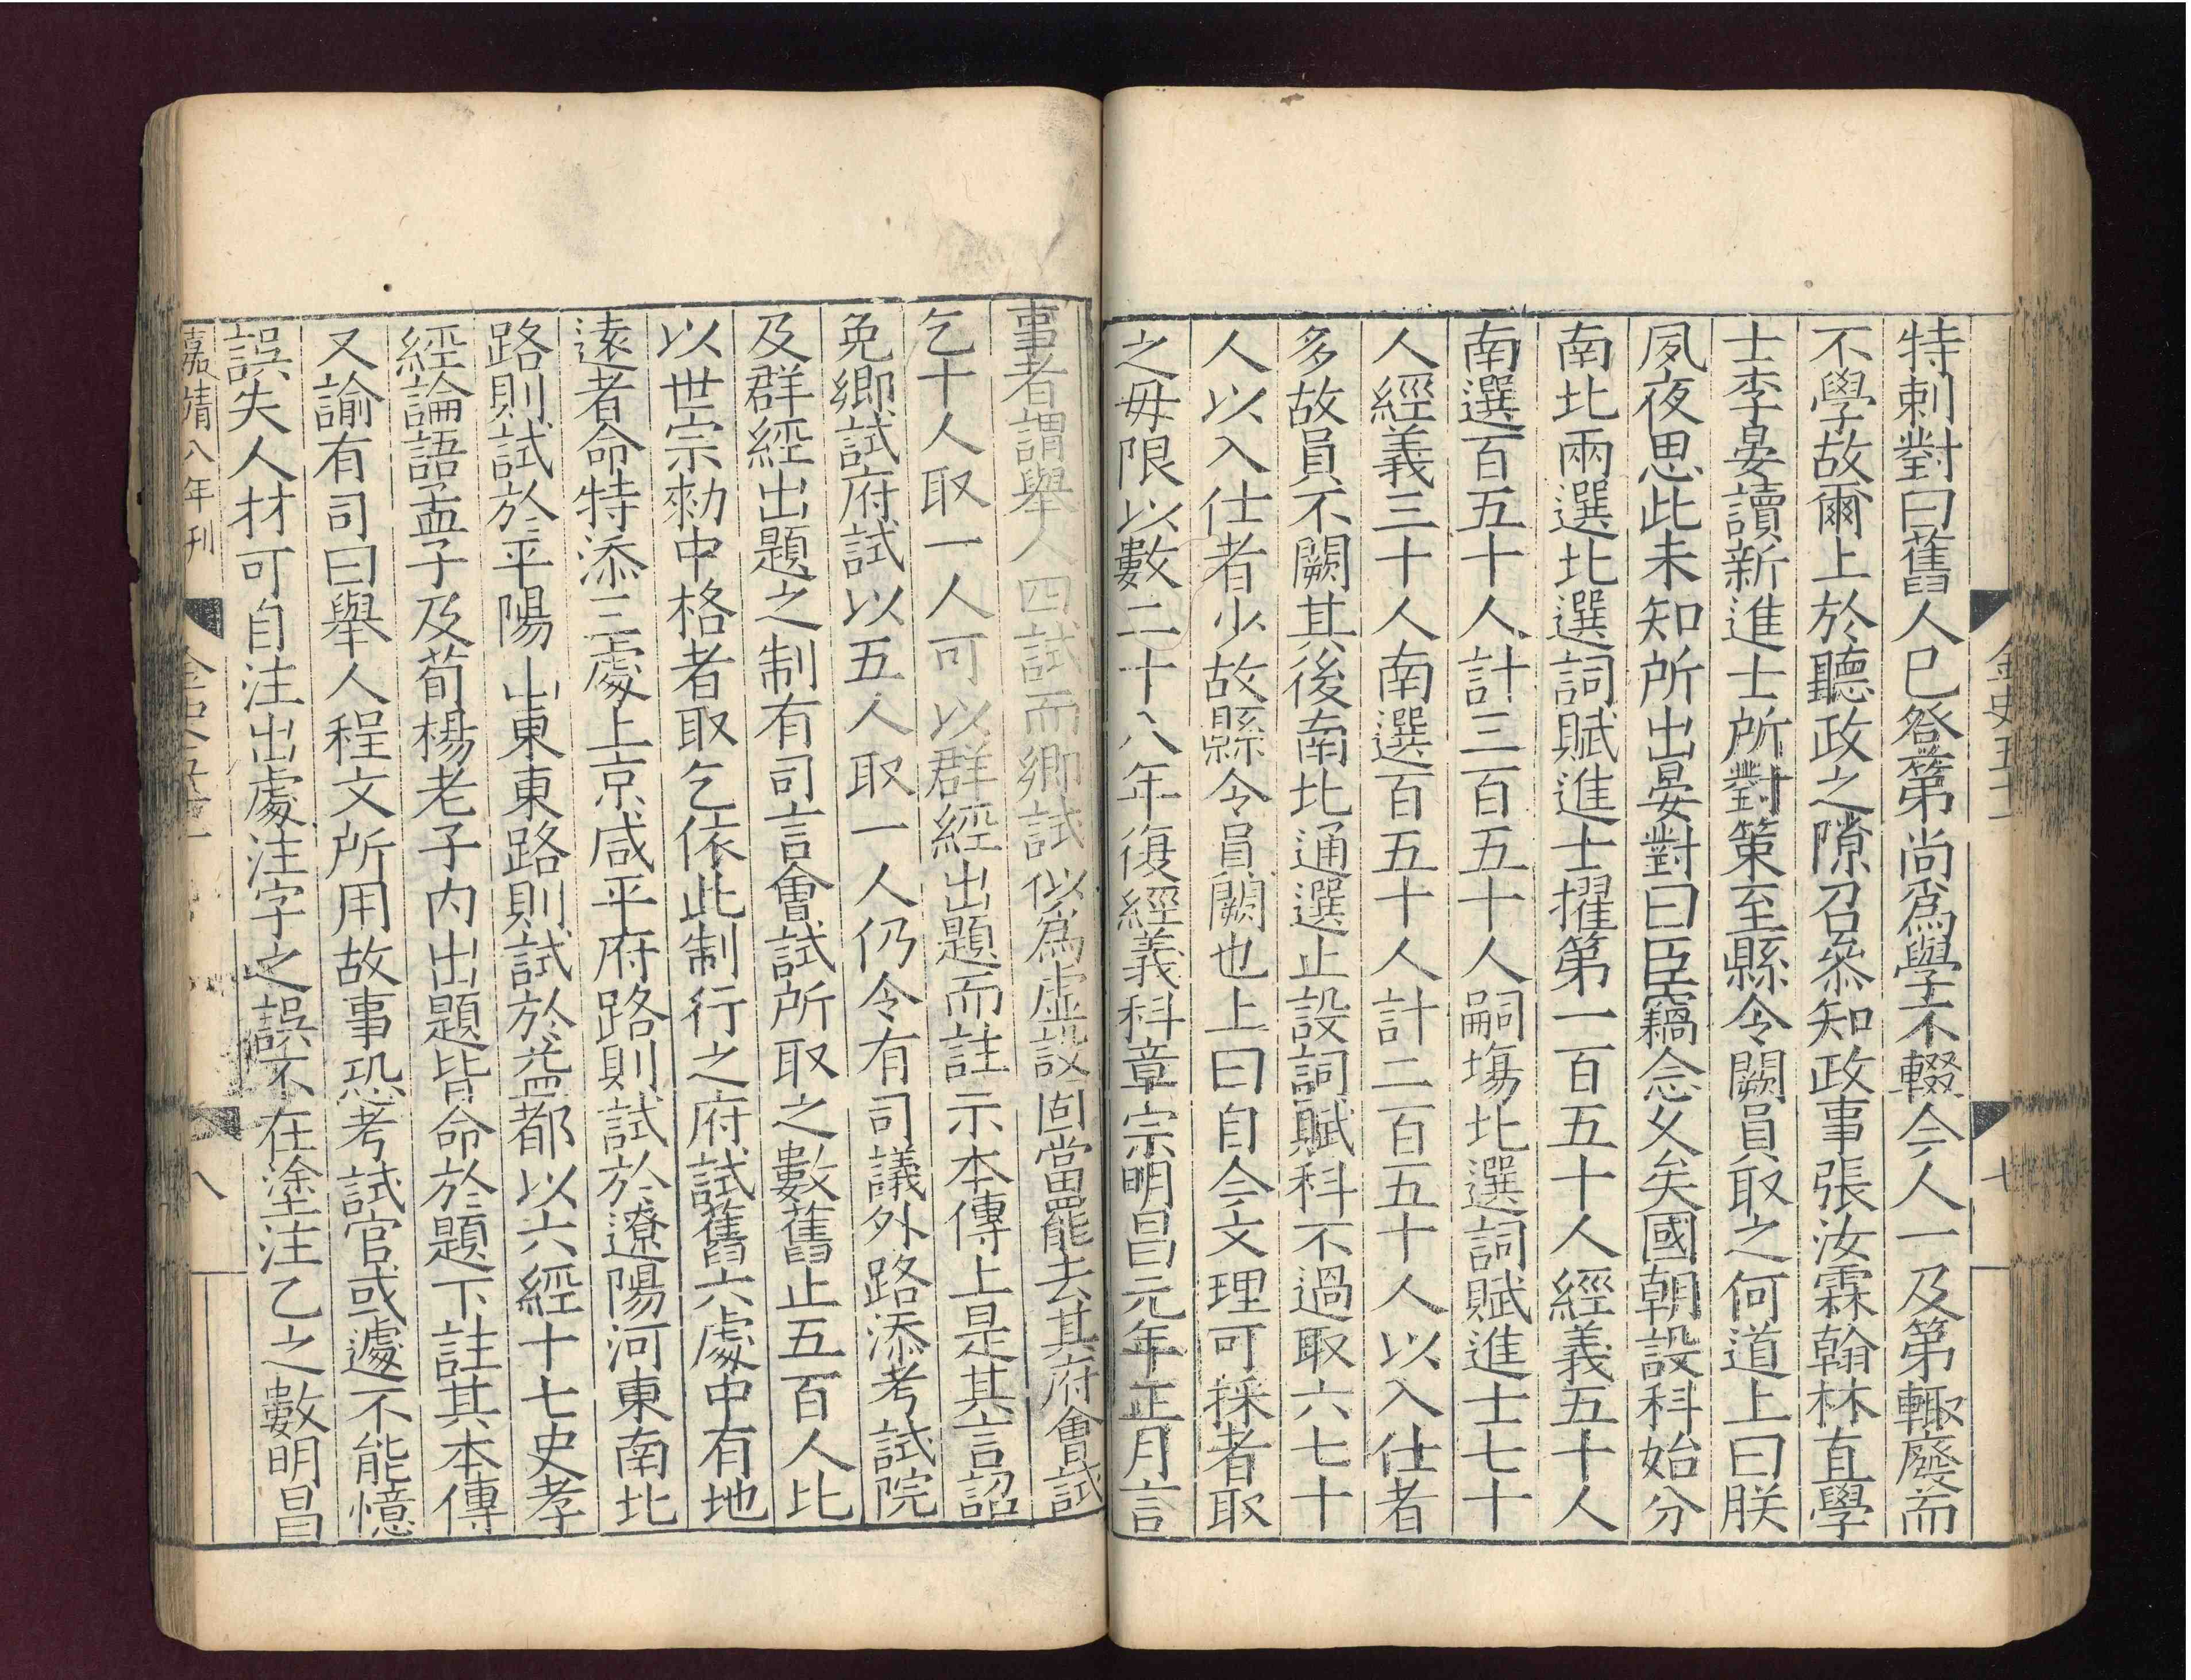 特剌對曰舊人已登第尚爲學不輟今人一及第輙廢而
不學故爾上於聽政之隙召叅知政事張汝霖翰林直學
士李晏讀新進士所對策至縣令闕員取之何道上曰朕
夙夜思此未知所出晏對曰臣竊念乆矣國朝設科始分
南北兩選北選詞賦進士擢第一百五十人經義五十人
南選百五十人計三百五十人嗣塲北選詞賦進士七十
人經義三十人南選百五十人計二百五十人以入仕者
多故員不闕其後南北通選止設詞賦科不過取六七十
人以入仕者少故縣令員闕也上曰自今文理可採者取
之毋限以數二十八年復經義科章宗明昌元年正月言
金史五十一
七
事者謂舉人四試而鄉試似爲虚設固當罷去其府會試
乞十人取一人可以群經出題而註示本傳上是其言詔
免鄉試府試以五人取一人仍令有司議外路添考試院
及群經出題之制有司言會試所取之數舊止五百人比
以世宗勑中格者取乞依此制行之府試舊六處中有地
遠者命特添三處上京咸平府路則試於遼陽河東南北
路則試於平陽山東東路則試於益都以六經十七史孝
經論語孟子及荀楊老子内出題皆命於題下註其本傳
又諭有司曰舉人程文所用故事恐考試官或遽不能憶
誤失人材可自注出處注字之誤不在塗注乙之數明昌
嘉靖八年刊
八